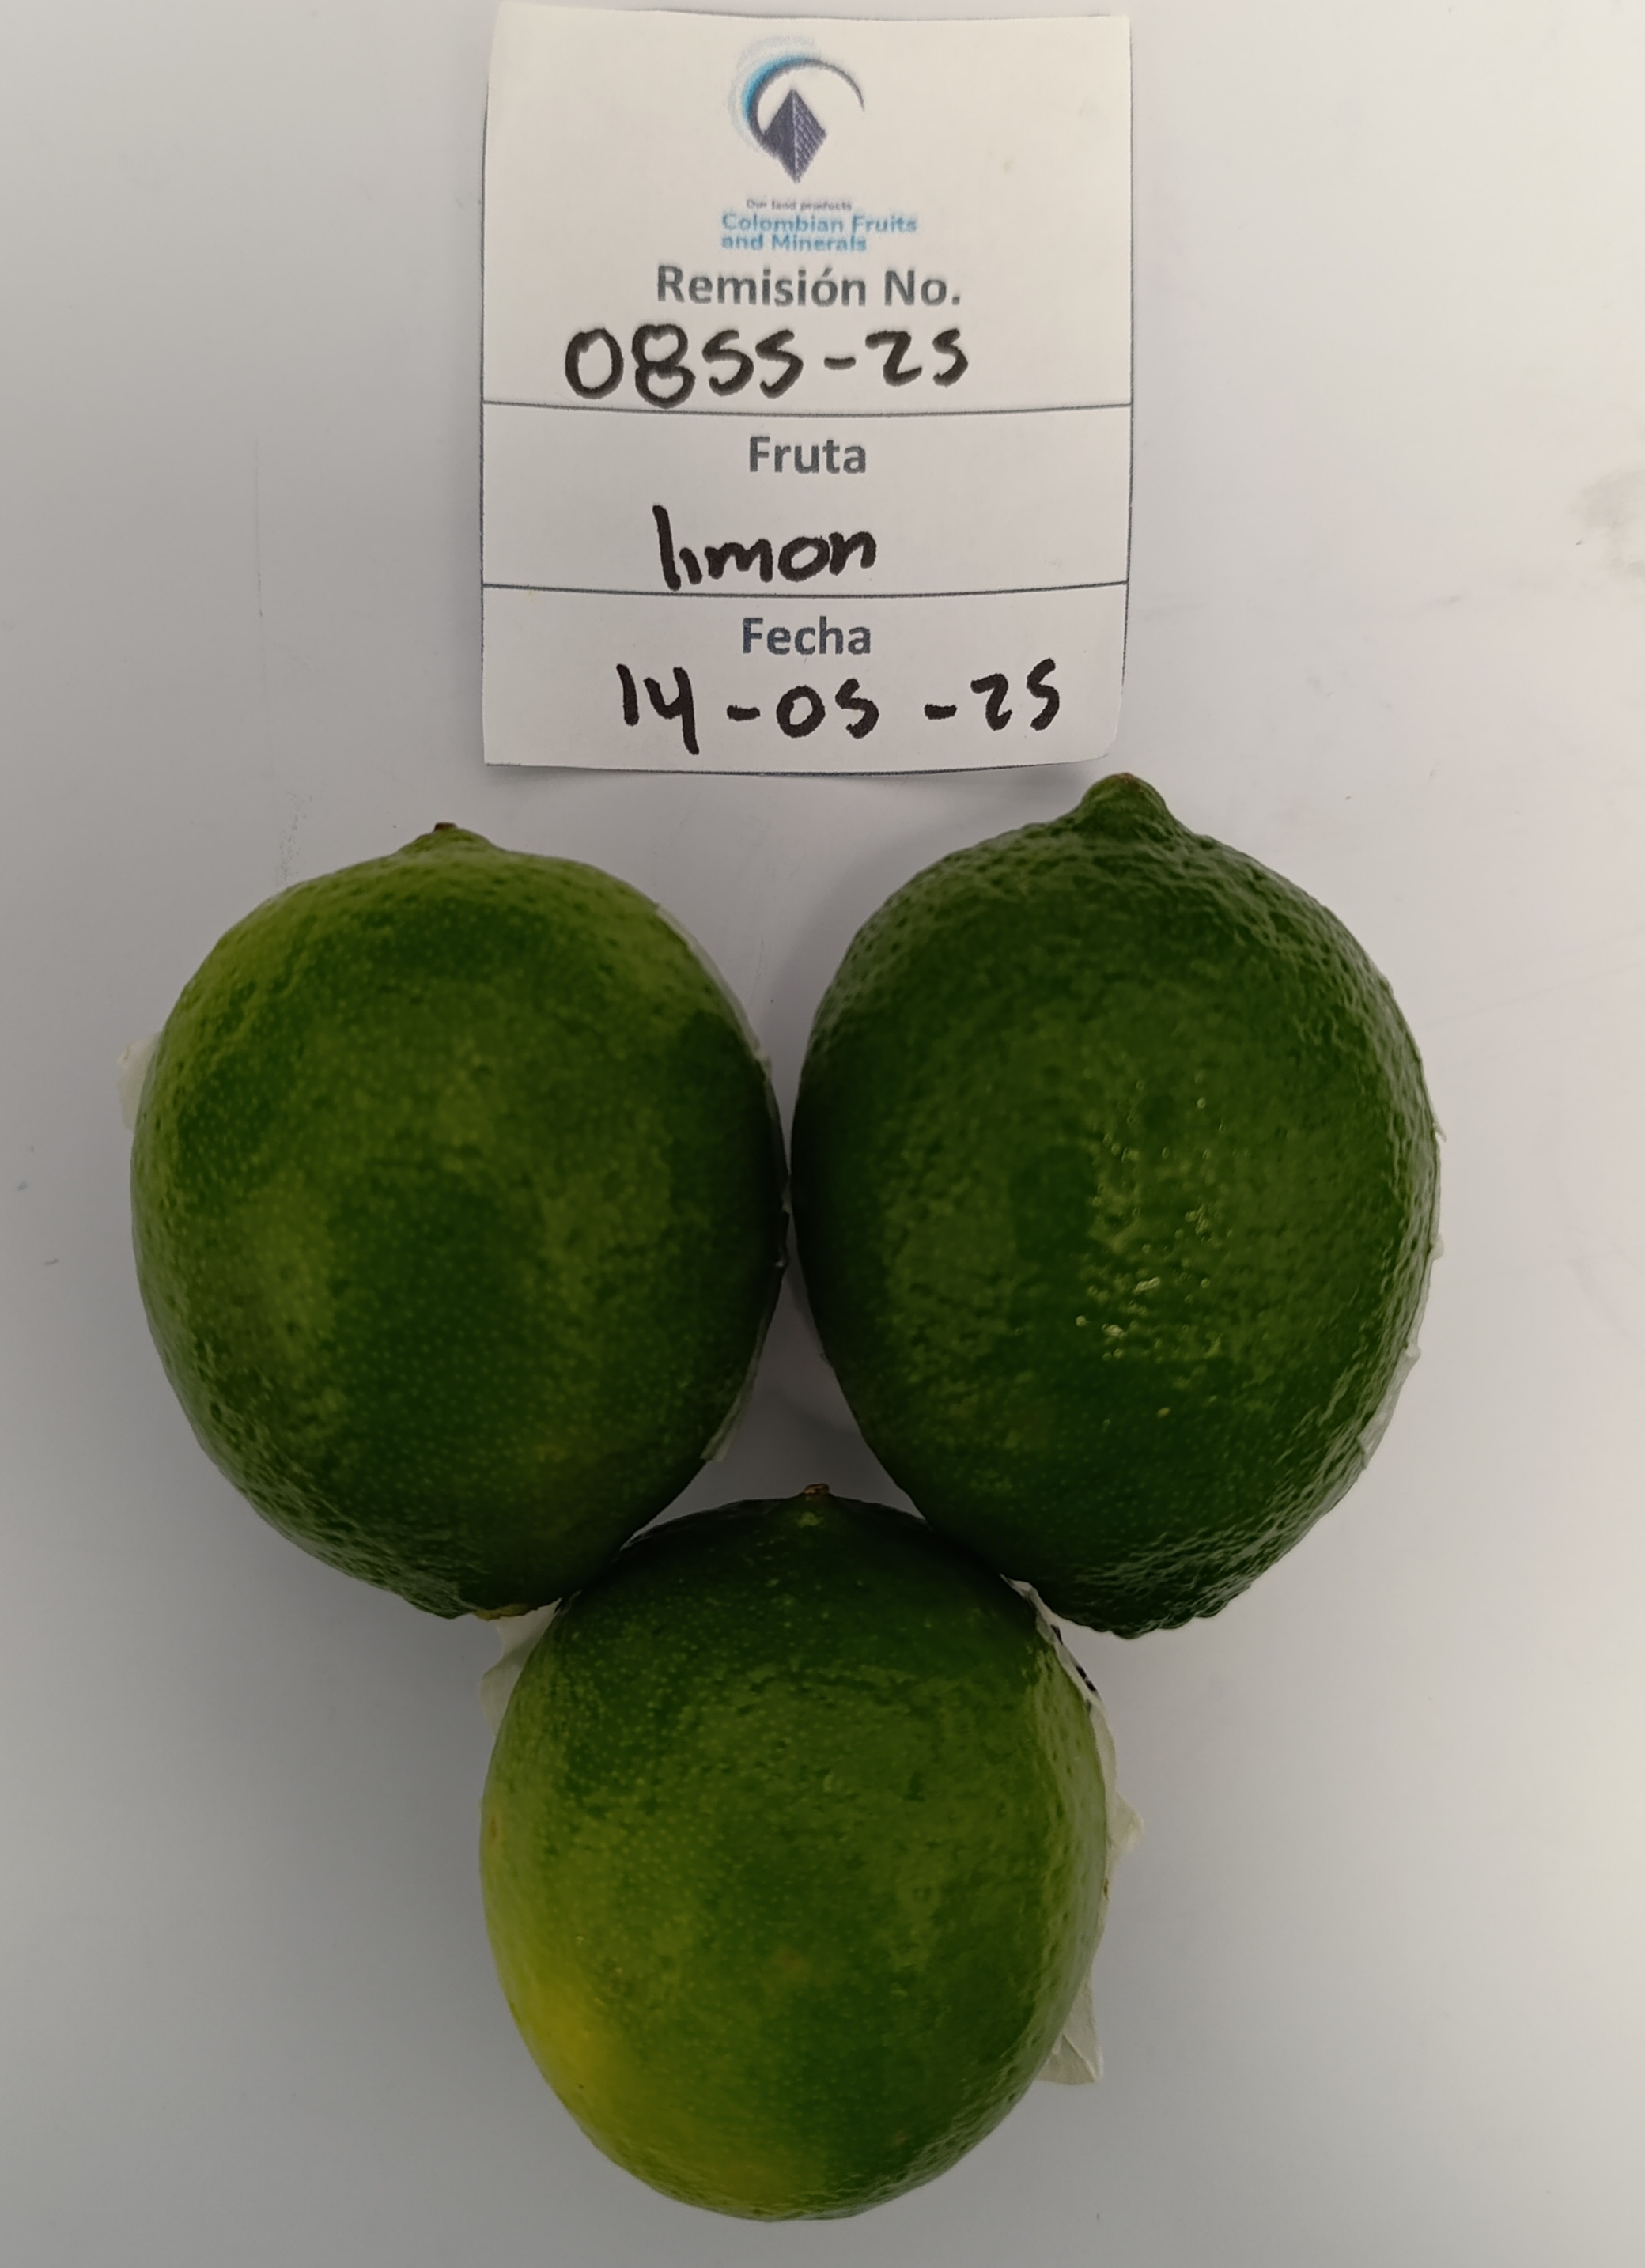 Our land products
Colombian Fruits
and Minerals
Remisión No.
0855-25
Fruta
limon
Fecha
14-05-25